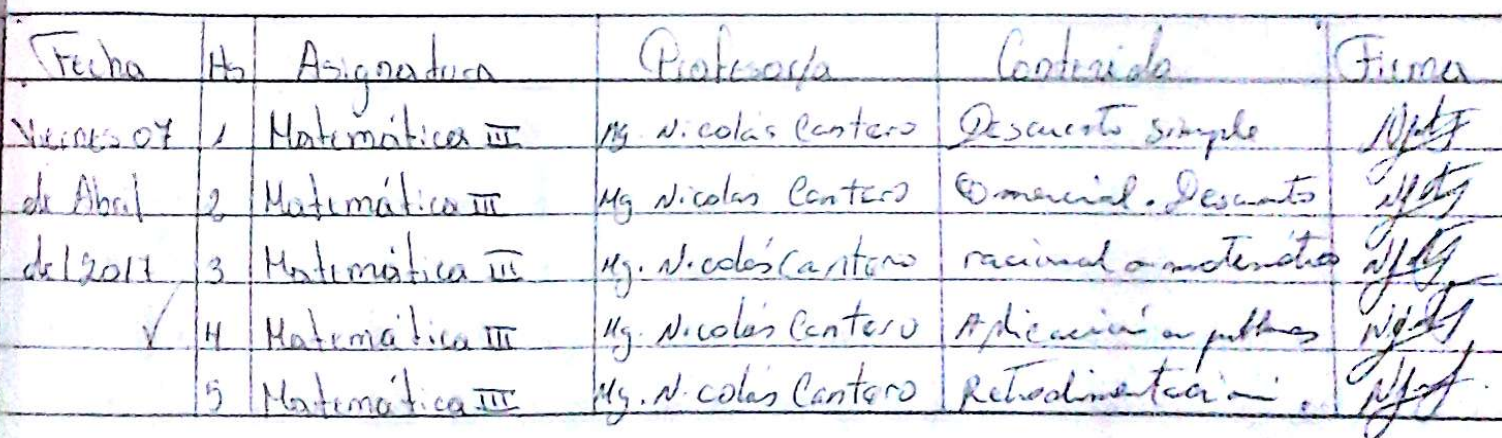 Fecha Hs Asignatura Profesor/a Contenido Firma
Viernes 07 1 Matemática III Mg Nicolás Cantero Descuento simple
de Abril 2 Matemática III Mg Nicolás Cantero Comercial. Descuento
del 2017 3 Matemática III Mg. Nicolás Cantero racional o matemático
✓ 4 Matemática III Mg. Nicolás Cantero Aplicación a problemas
5 Matemática III Mg. Nicolás Cantero Retroalimentación.